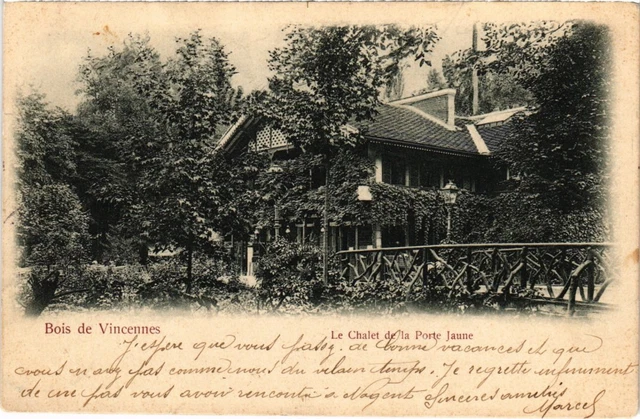 Bois de Vincennes
Le Chalet de la Porte Jaune
J'espère que vous passez de bonne vacances et que
vous n'avez pas comme nous du vilain temps. Je regrette infiniment
de ne pas vous avoir rencontré à Nogent Sincères amitiés
Marcel